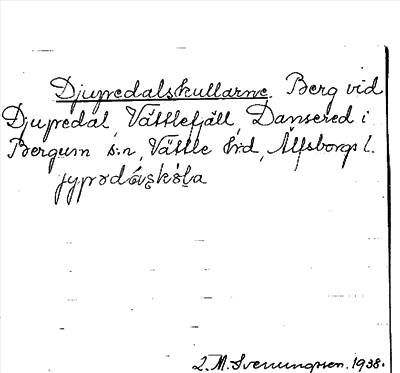 Djupedalskullarne. Berg vid
Djupedal, Vättlefjäll, Dansered i
Bergum s:n, Vättle hd, Älfsborgs l.
L. M. Svenungsson. 1938.